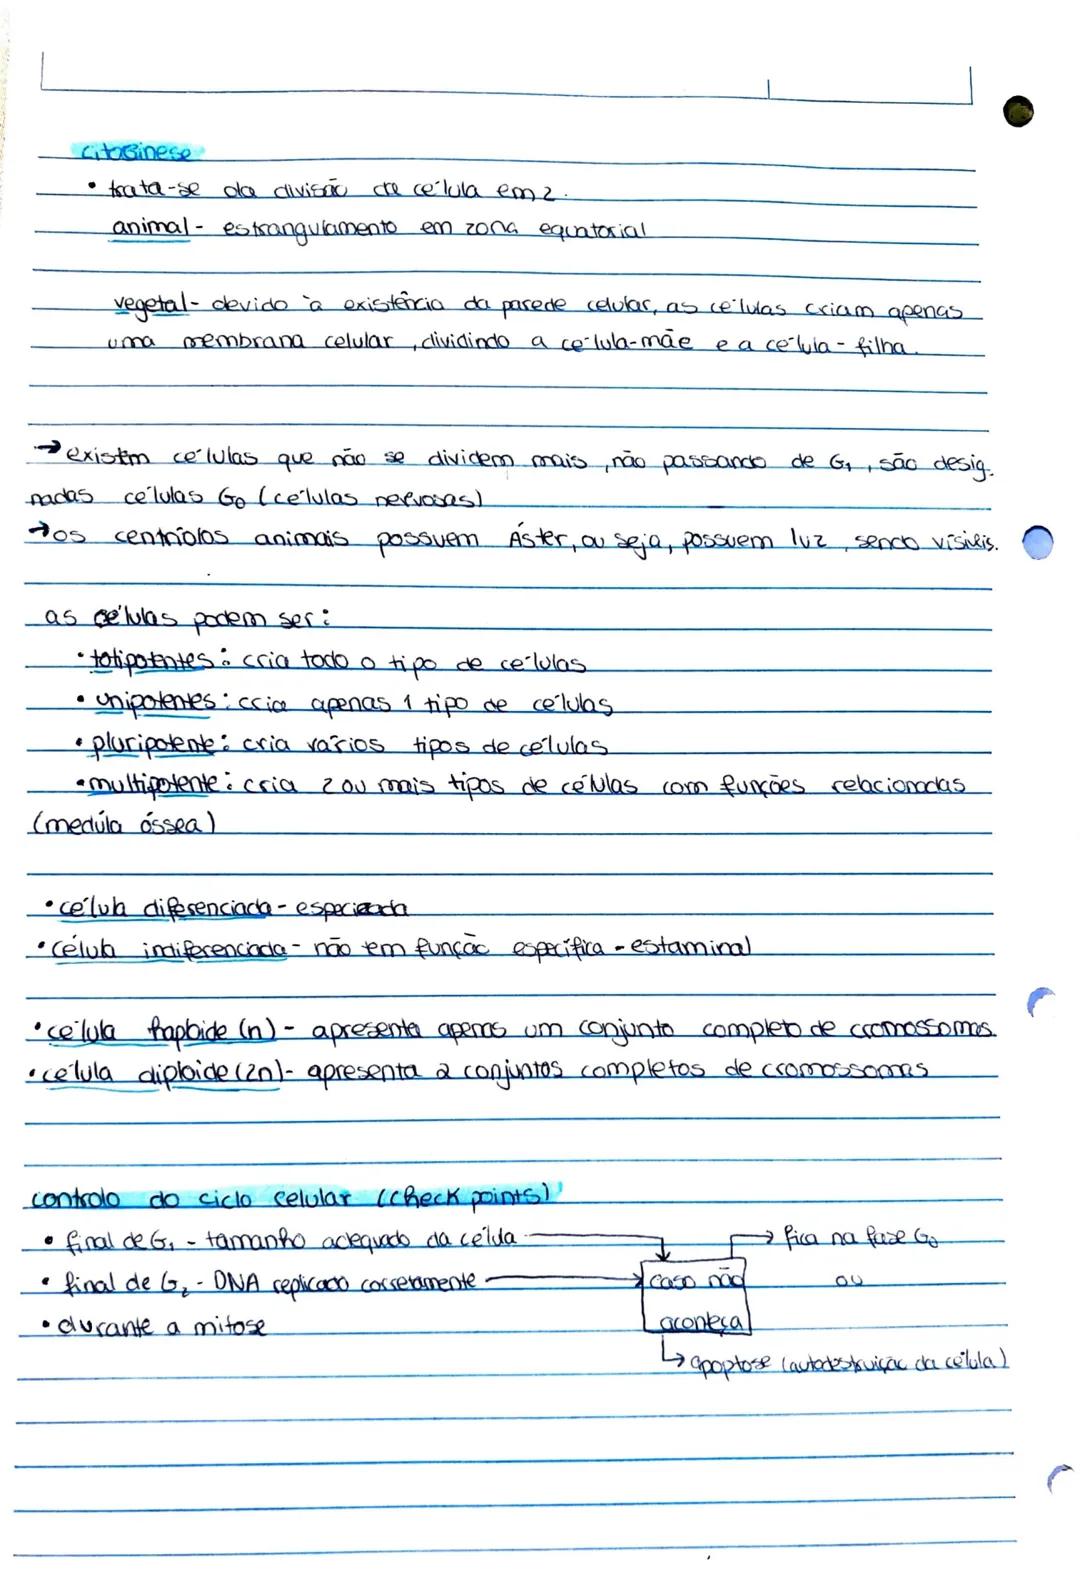 citocinese
• trata-se da divisão de célula em 2.
animal - estrangulamento em zona equatorial
vegetal - devido à existência da parede celular, as células criam apenas
uma membrana celular, dividindo a célula-mãe e a célula-filha.
→ existem células que não se dividem mais, não passando de G₁, são desig-
nadas células G₀ (células nervosas)
→ os centríolos animais possuem Áster, ou seja, possuem luz, sendo vísiveis.
as células podem ser:
• totipotentes: cria todo o tipo de células
• unipotentes: cria apenas 1 tipo de células
• pluripotente: cria vários tipos de células
• multipotente: cria 2 ou mais tipos de células com funções relacionadas
(medúla óssea)
• célula diferenciada -
• célula indiferenciada - não tem função específica - estaminal
• célula haploide (n) - apresenta apenas um conjunto completo de cromossomas.
• célula diploide (2n) - apresenta 2 conjuntos completos de cromossomas
controlo do ciclo celular (check points)
• final de G₁ - tamanho adequado da célula → fica na fase G₀
• final de G₂ - DNA replicado corretamente → caso não ou
• durante a mitose aconteça
↳ apoptose (autodestruição da célula)